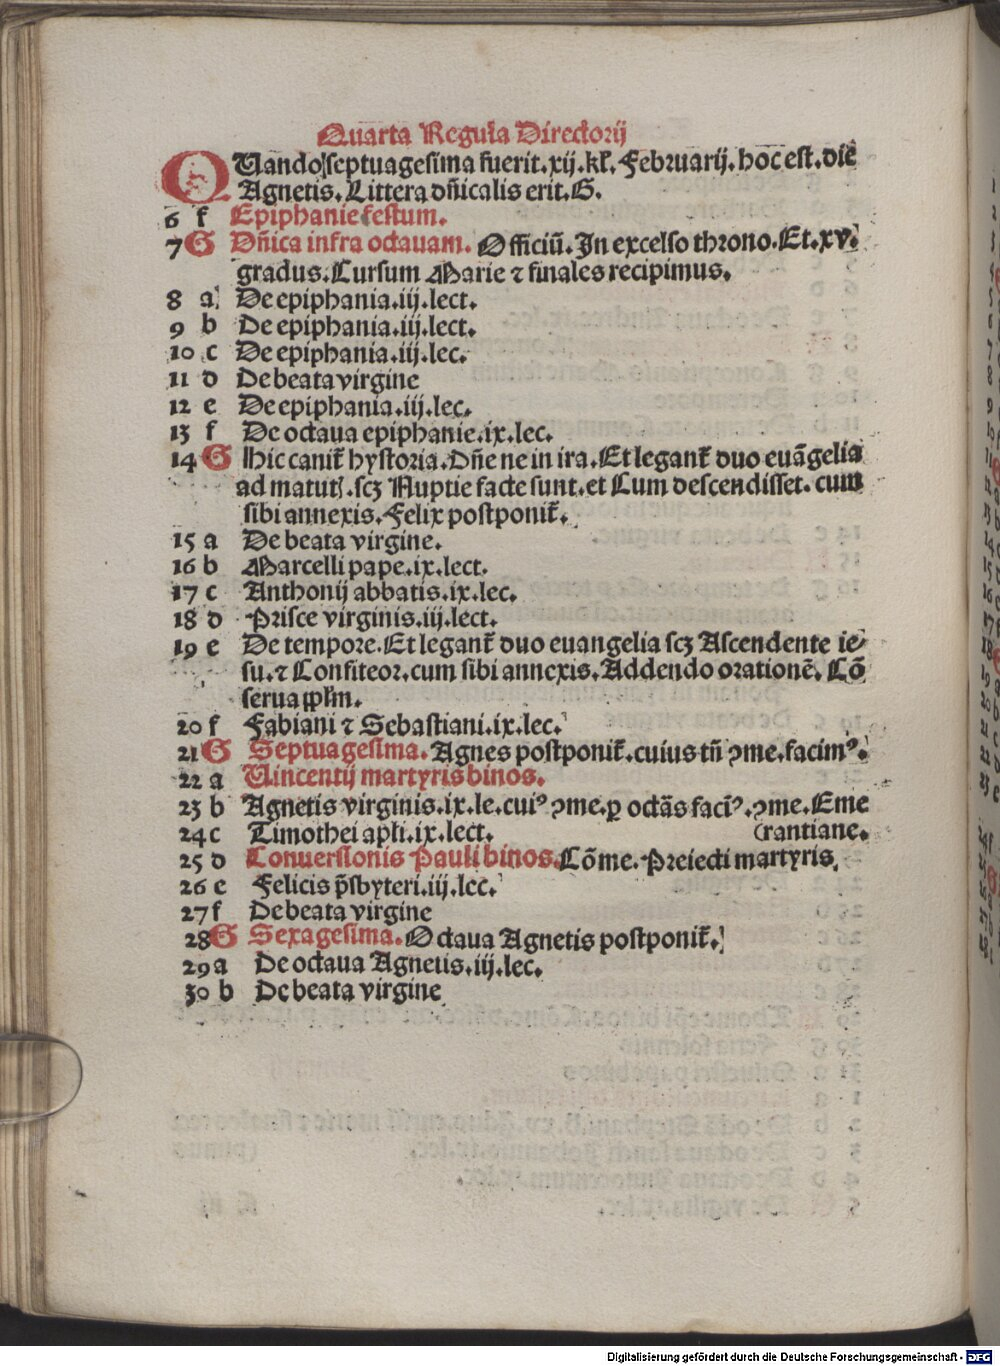 Quarta Regula Directorij
QUando septuagesima fuerit.xij.kl̄.Februarij.hoc est.die
Agnetis.Littera dn̄icalis erit.G.
6 f Epiphanie festum.
7 G Dn̄ica infra octauam. Officiū.In excelso throno.Et.xv.
gradus.Cursum Marie ⁊ finales recipimus.
8 a De epiphania.iij.lect.
9 b De epiphania.iij.lect.
10 c De epiphania.iij.lec.
11 d De beata virgine
12 e De epiphania.iij.lec.
13 f De octaua epiphanie.ix.lec.
14 G Hic canit̄ hystoria.Dn̄e ne in ira.Et legant̄ duo euāgelia
ad matut̄.scꝫ Nuptie facte sunt.et Cum descendisset.cum
sibi annexis.Felix postponit̄.
15 a De beata virgine.
16 b Marcelli pape.ix.lect.
17 c Anthonij abbatis.ix.lec.
18 d Prisce virginis.iij.lect.
19 e De tempore.Et legant̄ duo euangelia scꝫ Ascendente ie-
su.⁊ Confiteor.cum sibi annexis.Addendo orationē.Cō
serua pp̄lm.
20 f Fabiani ⁊ Sebastiani.ix.lec.
21 G Septuagesima. Agnes postponit̄.cuius tn̄ ꝯme.facimꝰ.
22 a Vincentij martyris binos.
23 b Agnetis virginis.ix.le.cuiꝰ ꝯme.ꝑ octās faciꝰ.ꝯme.Eme
24 c Timothei apl̄i.ix.lect. (rantiane.
25 d Conuersionis Pauli binos. Cōme.Preiecti martyris.
26 e Felicis p̄sbyteri.iij.lec.
27 f De beata virgine
28 G Sexagesima. Octaua Agnetis postponit̄.
29 a De octaua Agnetis.iij.lec.
30 b De beata virgine
Digitalisierung gefördert durch die Deutsche Forschungsgemeinschaft - DFG